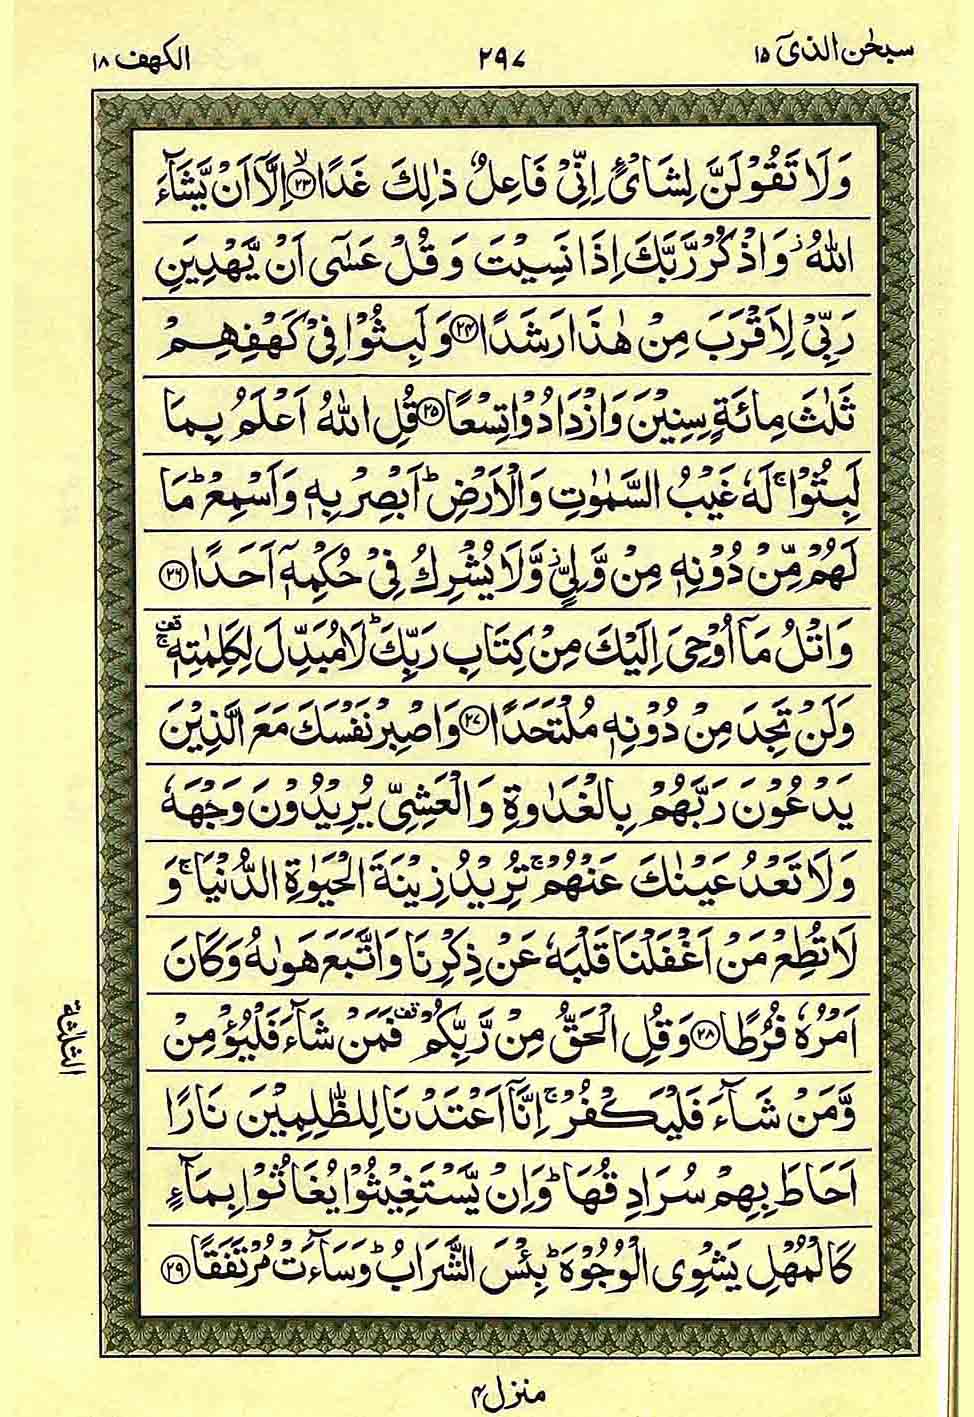 سبحٰن الذیٓ ۱۵
۲۹۷
الکهف ۱۸
وَلَا تَقُوْلَنَّ لِشَایْءٍ اِنِّیْ فَاعِلٌ ذٰلِكَ غَدًا ۙ﴿۲۳﴾ اِلَّاۤ اَنْ یَّشَآءَ
اللّٰهُ ؗ وَاذْكُرْ رَّبَّكَ اِذَا نَسِیْتَ وَ قُلْ عَسٰۤی اَنْ یَّهْدِیَنِ
رَبِّیْ لِاَقْرَبَ مِنْ هٰذَا رَشَدًا ﴿۲۴﴾ وَ لَبِثُوْا فِیْ كَهْفِهِمْ
ثَلٰثَ مِائَةٍ سِنِیْنَ وَازْدَادُوْا تِسْعًا ﴿۲۵﴾ قُلِ اللّٰهُ اَعْلَمُ بِمَا
لَبِثُوْا ۚ لَهٗ غَیْبُ السَّمٰوٰتِ وَالْاَرْضِ ؕ اَبْصِرْ بِهٖ وَاَسْمِعْ ؕ مَا
لَهُمْ مِّنْ دُوْنِهٖ مِنْ وَّلِیٍّ ؗ وَّلَا یُشْرِكُ فِیْ حُكْمِهٖۤ اَحَدًا ﴿۲۶﴾
وَاتْلُ مَاۤ اُوْحِیَ اِلَیْكَ مِنْ كِتَابِ رَبِّكَ ؕ لَا مُبَدِّلَ لِكَلِمٰتِهٖ ۚ قف
وَلَنْ تَجِدَ مِنْ دُوْنِهٖ مُلْتَحَدًا ﴿۲۷﴾ وَاصْبِرْ نَفْسَكَ مَعَ الَّذِیْنَ
یَدْعُوْنَ رَبَّهُمْ بِالْغَدٰوةِ وَالْعَشِیِّ یُرِیْدُوْنَ وَجْهَهٗ
وَلَا تَعْدُ عَیْنٰكَ عَنْهُمْ ۚ تُرِیْدُ زِیْنَةَ الْحَیٰوةِ الدُّنْیَا ۚ وَ
لَا تُطِعْ مَنْ اَغْفَلْنَا قَلْبَهٗ عَنْ ذِكْرِنَا وَاتَّبَعَ هَوٰىهُ وَكَانَ
اَمْرُهٗ فُرُطًا ﴿۲۸﴾ وَقُلِ الْحَقُّ مِنْ رَّبِّكُمْ قف فَمَنْ شَآءَ فَلْیُؤْمِنْ
وَّمَنْ شَآءَ فَلْیَكْفُرْ ۚ اِنَّاۤ اَعْتَدْنَا لِلظّٰلِمِیْنَ نَارًا
اَحَاطَ بِهِمْ سُرَادِقُهَا ؕ وَاِنْ یَّسْتَغِیْثُوْا یُغَاثُوْا بِمَآءٍ
كَالْمُهْلِ یَشْوِی الْوُجُوْهَ ؕ بِئْسَ الشَّرَابُ ؕ وَسَآءَتْ مُرْتَفَقًا ﴿۲۹﴾
الثلثة
منزل ۴